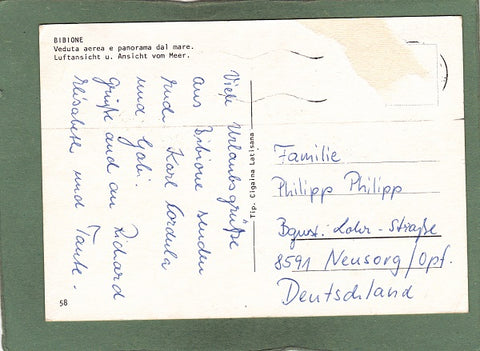 BIBIONE
Veduta aerea e panorama dal mare.
Luftansicht u. Ansicht vom Meer.
Viele Urlaubsgrüße
aus Bibione senden
Rudi Karl Cordula
und Gabi.
Grüße auch an Richard
Elisabeth und Tante.
Tip. Gigaina Latisana
Familie
Philipp Philipp
Bgmst.-Lohr-Straße
8591 Neusorg/Opf.
Deutschland
58